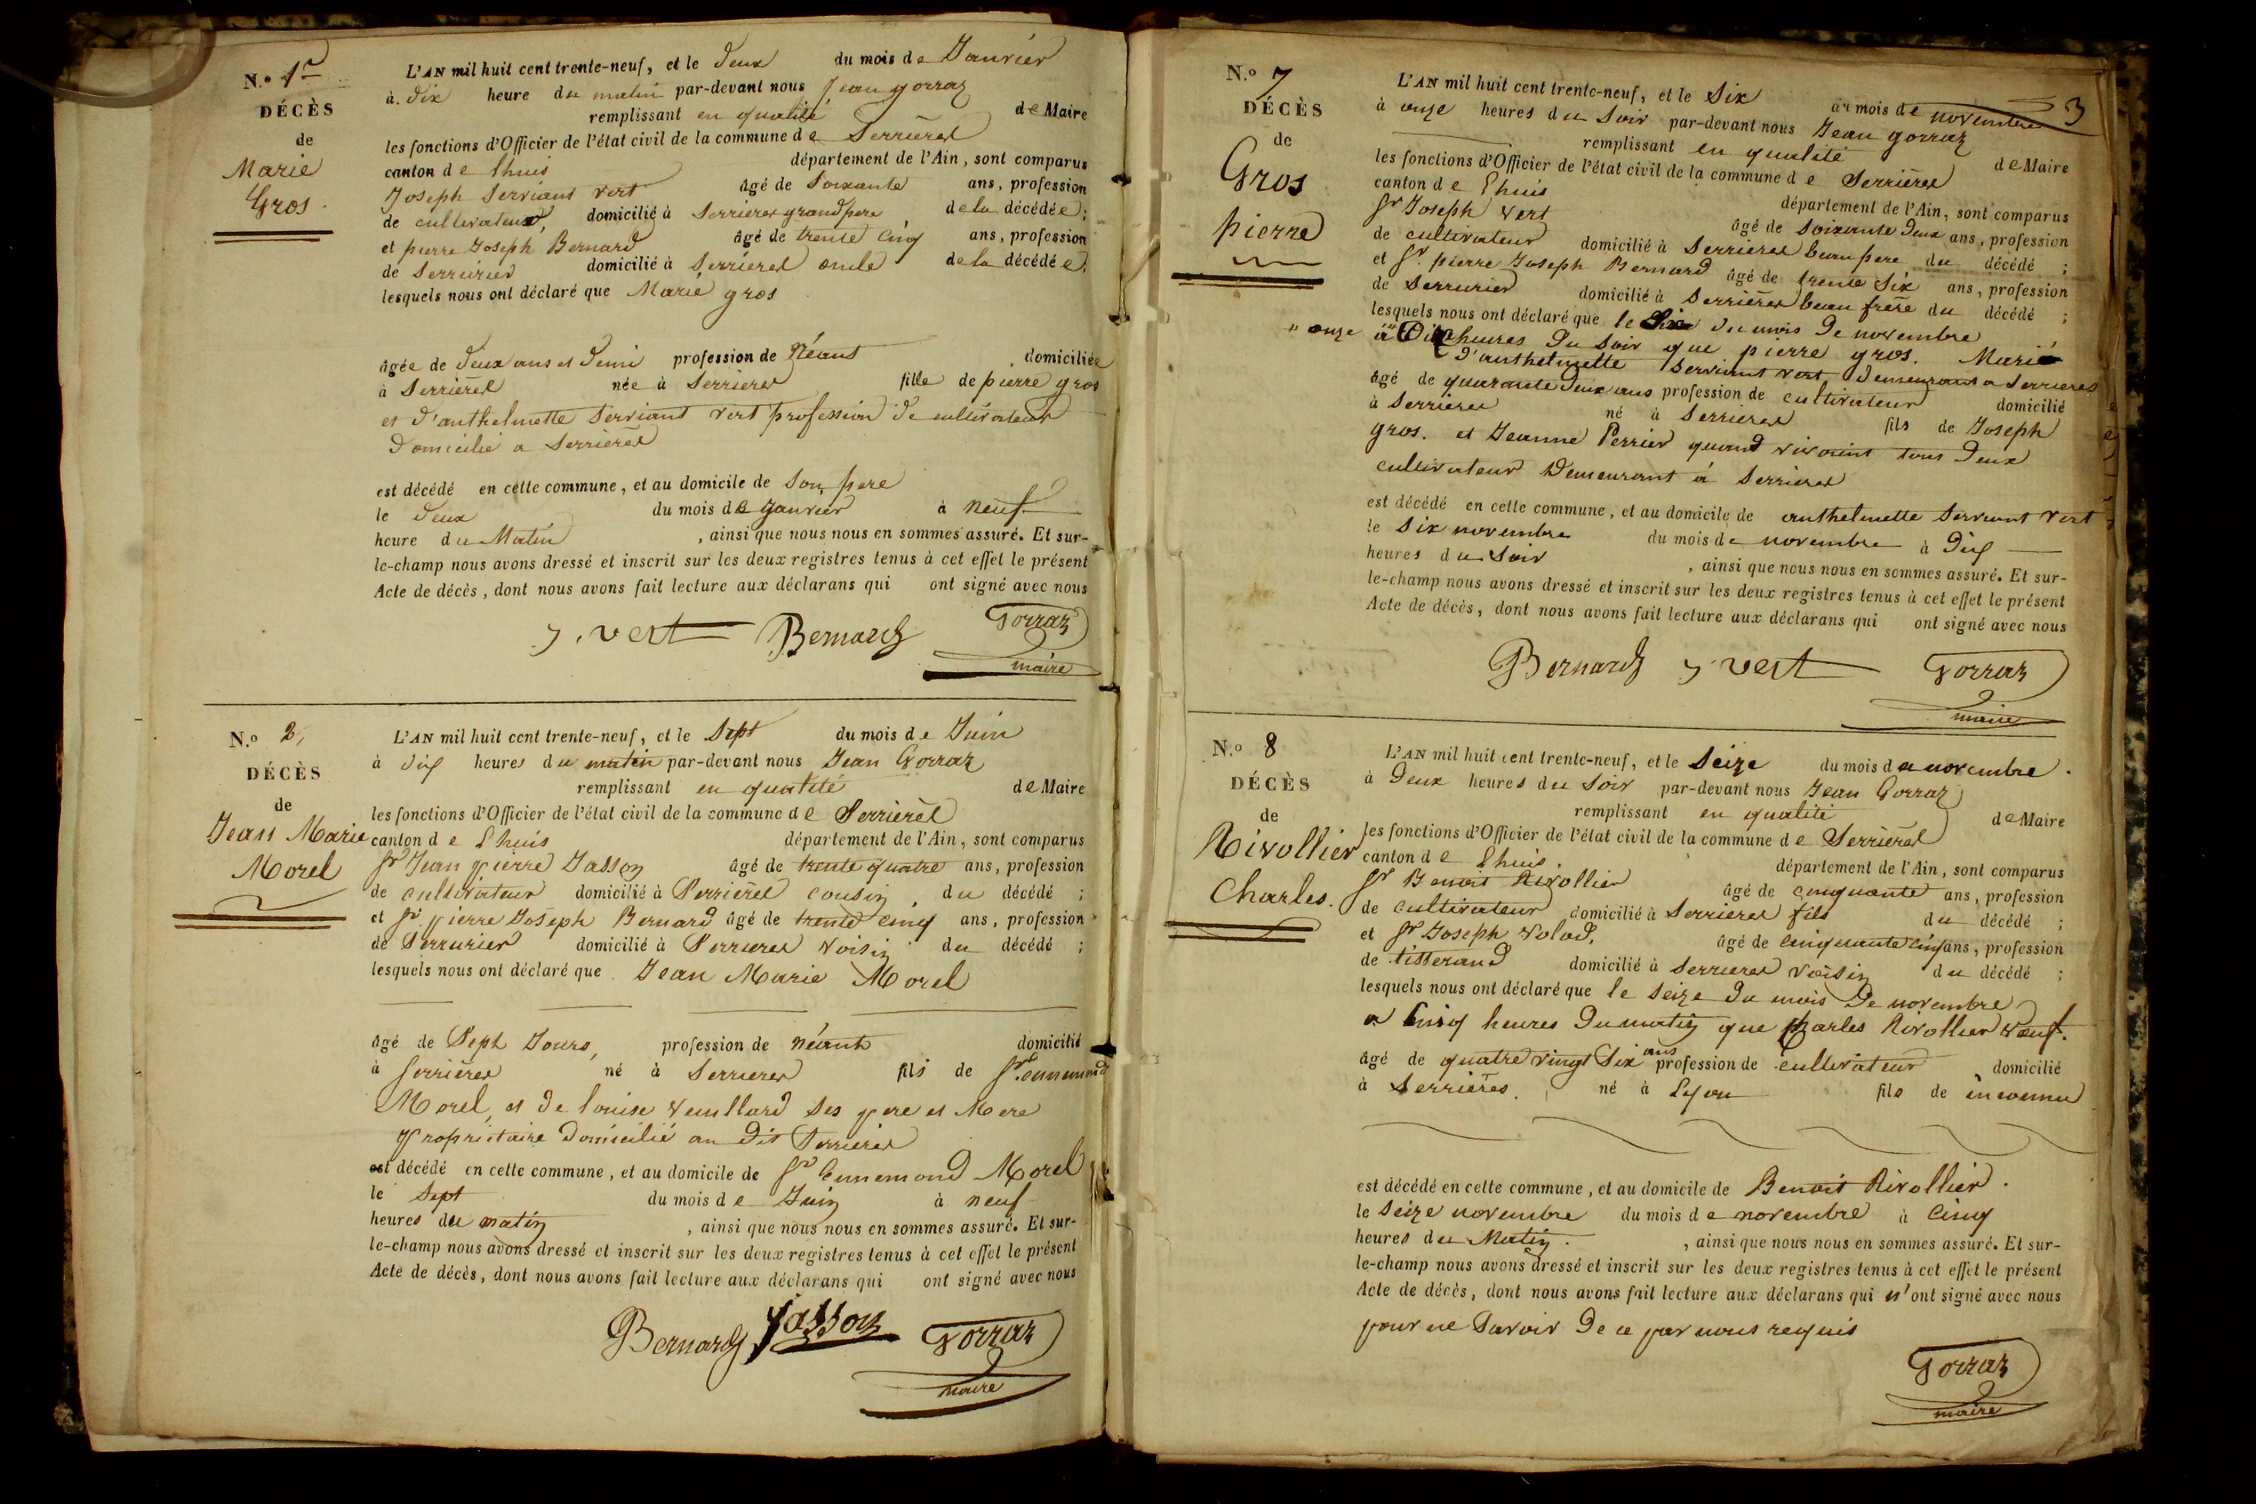 N.° 1er
DÉCÈS
de
Marie
Gros.
L'AN mil huit cent trente-neuf, et le deux du mois de Janvier
à dix heure du matin par-devant nous Jean gorraz
remplissant en qualité de Maire
les fonctions d'Officier de l'état civil de la commune de Serrières
canton de Lhuis département de l'Ain, sont comparus
Joseph Serviant Vert âgé de Soixante ans, profession
de cultivateur, domicilié à Serrieres grandpere de la décédée;
et pierre Joseph Bernard âgé de trente Cinq ans, profession
de Serrurier domicilié à Serrières oncle de la décédée,
lesquels nous ont déclaré que Marie gros
âgée de deux ans et demi profession de Néant domiciliée
à Serrières née à Serrieres fille de pierre gros
et d'anthelmette Serviant Vert profession de cultivateur
Domicilié a Serrières
est décédé en cette commune, et au domicile de Son pere
le deux du mois de Janvier à neuf
heure du Matin, ainsi que nous nous en sommes assuré. Et sur-
le-champ nous avons dressé et inscrit sur les deux registres tenus à cet effet le présent
Acte de décès, dont nous avons fait lecture aux déclarans qui ont signé avec nous
J. Vert Bernard Gorraz
maire
N.° 2,
DÉCÈS
de
Jean Marie
Morel
L'AN mil huit cent trente-neuf, et le Sept du mois de Juin
à dix heures du matin par-devant nous Jean Gorraz
remplissant en qualité de Maire
les fonctions d'Officier de l'état civil de la commune de Serrières
canton de Lhuis département de l'Ain, sont comparus
Sr Jean pierre Jasson âgé de trente quatre ans, profession
de cultivateur domicilié à Serrières cousin, du décédé;
et Sr pierre Joseph Bernard âgé de trente cinq ans, profession
de Serrurier domicilié à Serrieres Voisin du décédé;
lesquels nous ont déclaré que Jean Marie Morel
âgé de Sept Jours, profession de néant domicilié
à Serrières né à Serrieres fils de Sr. ennemond
Morel, et de louise Veuillard Ses pere et Mere
propriétaire domicilié au dit Serrieres
est décédé en cette commune, et au domicile de Sr Ennemond Morel
le Sept du mois de Juin à neuf
heures du matin, ainsi que nous nous en sommes assuré. Et sur-
le-champ nous avons dressé et inscrit sur les deux registres tenus à cet effet le présent
Acte de décès, dont nous avons fait lecture aux déclarans qui ont signé avec nous
Bernard Jasson Gorraz
maire
3
N.° 7
DÉCÈS
de
Gros
pierre
L'AN mil huit cent trente-neuf, et le Six du mois de novembre
à onze heures du Soir par-devant nous Jean gorraz
remplissant en qualité de Maire
les fonctions d'Officier de l'état civil de la commune de Serrières
canton de Lhuis département de l'Ain, sont comparus
Sr Joseph Vert âgé de Soixante deux ans, profession
de cultivateur domicilié à Serrieres beau pere du décédé;
et Sr. pierre Joseph Bernard âgé de trente Six ans, profession
de Serrurier domicilié à Serrières beau frere du décédé;
lesquels nous ont déclaré que le Six du mois de novembre
" onze à Dix heures du Soir que pierre gros. Marié
d'anthelmette Serviant vert demeurant a Serrieres
âgé de quarante deux ans profession de cultivateur domicilié
à Serrières né à Serrieres fils de Joseph
gros. et Jeanne Perrier quand vivoint tous deux
cultivateur Demeurant à Serrieres
est décédé en cette commune, et au domicile de anthelmette Serviant Vert
le Six novembre du mois de novembre à Dix
heures du Soir, ainsi que nous nous en sommes assuré. Et sur-
le-champ nous avons dressé et inscrit sur les deux registres tenus à cet effet le présent
Acte de décès, dont nous avons fait lecture aux déclarans qui ont signé avec nous
Bernard J. Vert Gorraz
maire
N.° 8
DÉCÈS
de
Rivollier
Charles.
L'AN mil huit cent trente-neuf, et le Seize du mois de novembre.
à Deux heures du Soir par-devant nous Jean Gorraz
remplissant en qualité de Maire
les fonctions d'Officier de l'état civil de la commune de Serrières
canton de Lhuis. département de l'Ain, sont comparus
Sr Benoit Rivollier âgé de cinquante ans, profession
de cultivateur domicilié à Serrieres fils du décédé;
et Sr Joseph Volod, âgé de cinquante cinq ans, profession
de tisserand domicilié à Serrieres voisin du décédé;
lesquels nous ont déclaré que le Seize du mois de novembre
a Cinq heures du matin que Charles Rivollier Veuf.
âgé de quatre vingt Six ans profession de cultivateur domicilié
à Serrières. né à Lyon fils de inconnu
est décédé en cette commune, et au domicile de Benoit Rivollier.
le Seize novembre du mois de novembre à Cinq
heures du Matin. , ainsi que nous nous en sommes assuré. Et sur-
le-champ nous avons dressé et inscrit sur les deux registres tenus à cet effet le présent
Acte de décès, dont nous avons fait lecture aux déclarans qui n'ont signé avec nous
pour ne Savoir de ce par nous requis
Gorraz
maire